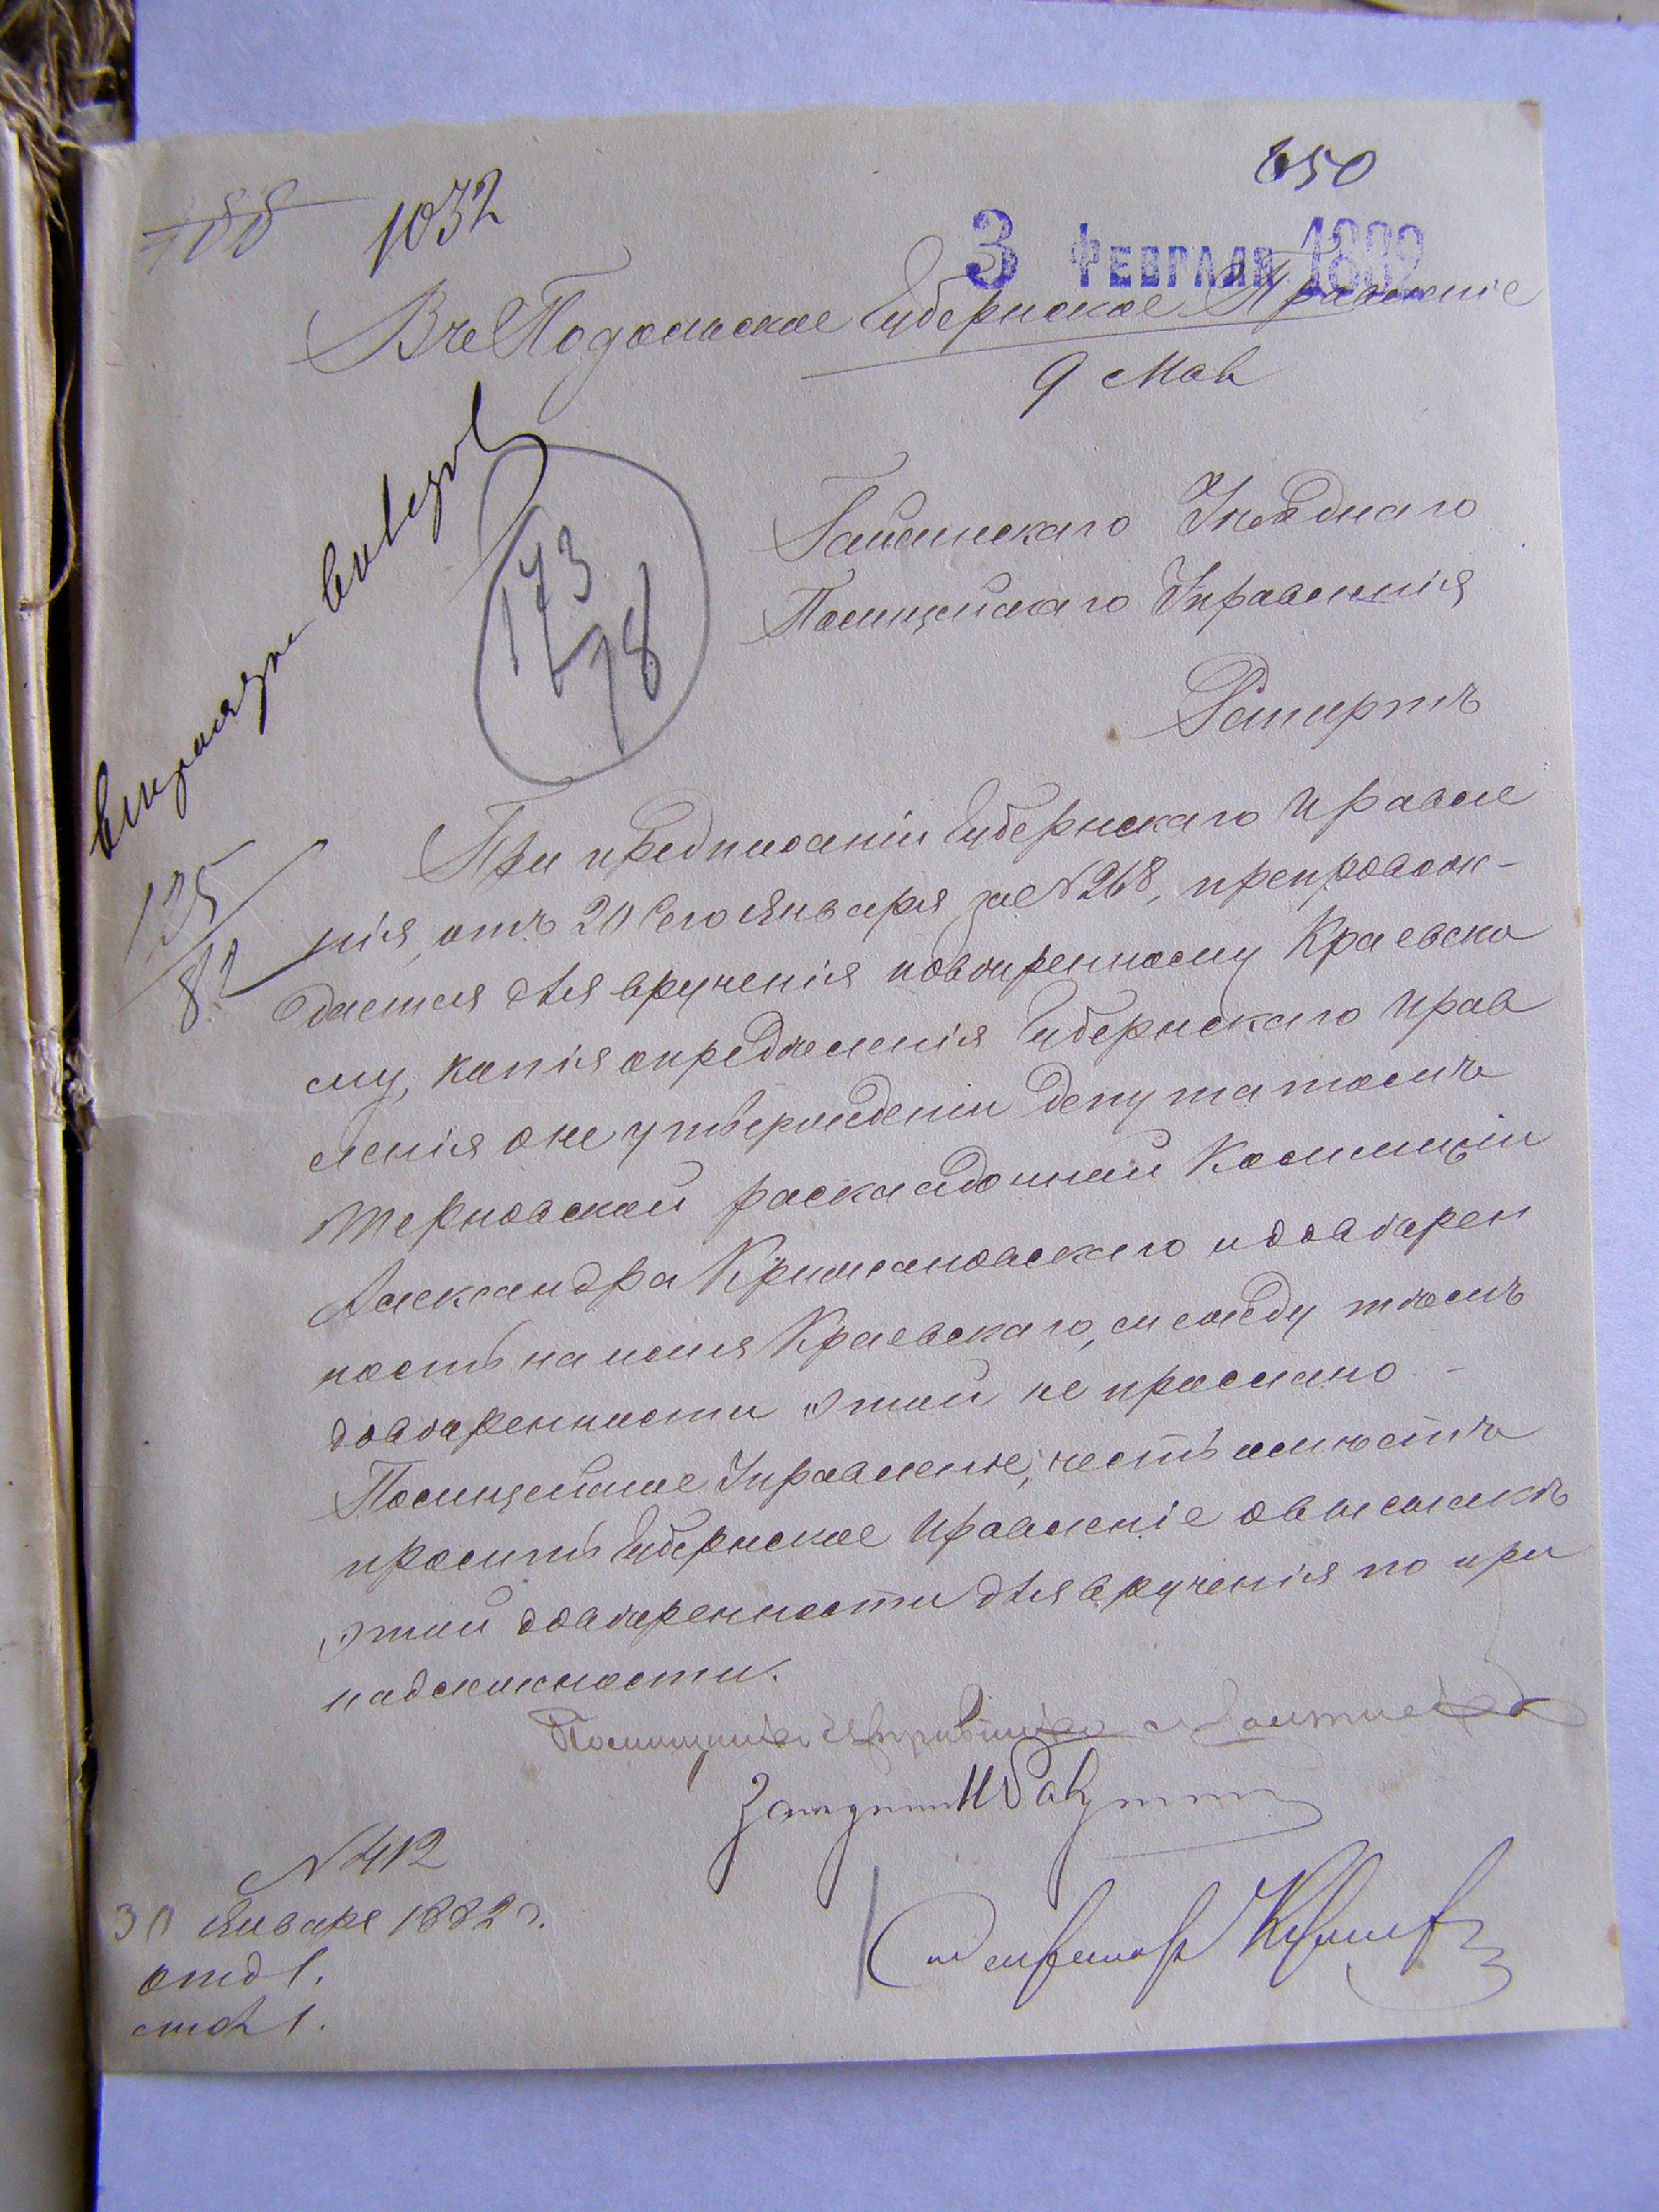 650
188 1032
3 ФЕВРАЛЯ 1882
Въ Подольское Губернское Правленіе
9 Мая
Гайсинскаго Уѣзднаго
Полицейскаго Управленія
173
78
Рапортъ
При предписаніи Губернскаго Правле
нія, отъ 20 сего Января за № 268, препровож-
125
82
дается для врученія повѣренному Краевско
му, копія опредѣленія Губернскаго Прав
ленія о не утвержденіи депутатомъ
Терновской раскладочной Коммиціи
Александра Крижановскаго и довѣрен
ность на имя Краевскаго, между тѣмъ
довѣренности этой не прослано -
Полицейское Управленіе, честь имѣетъ
просить Губернское Правленіе о высылкѣ
этой довѣренности для врученія по при
надлежности.
Помощникъ Исправника
Секретарь
№ 412
30 Января 1882 г.
отд 1.
стол 1.